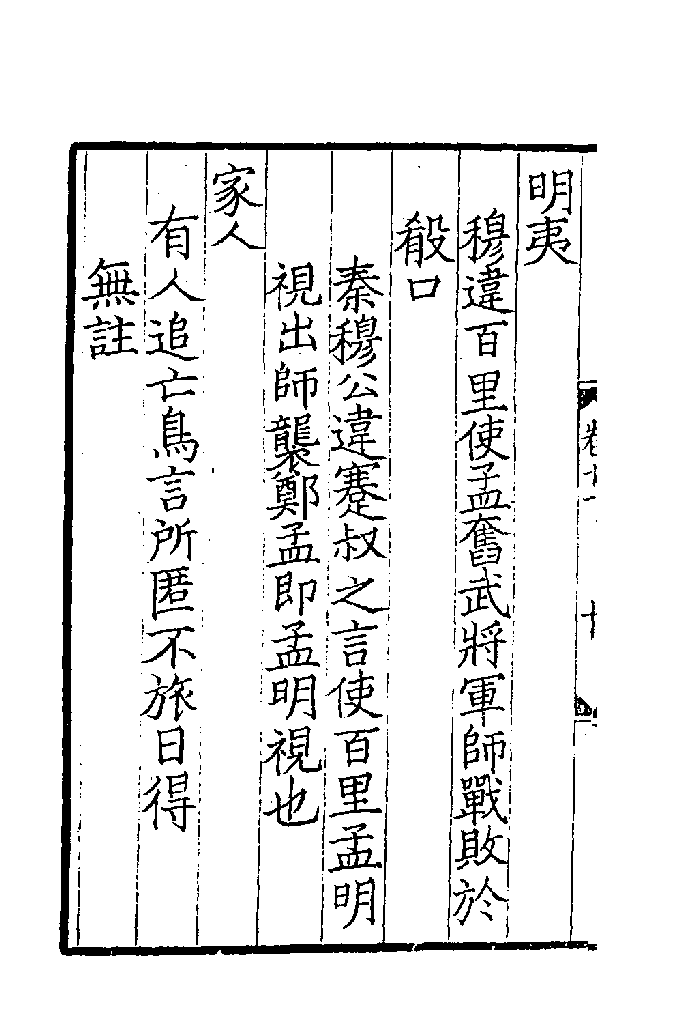 明夷
穆違百里使孟奮武將軍師戰敗於
殽口
秦穆公違蹇叔之言使百里孟明
視出師襲鄭孟即孟明視也
家人
有人追亡鳥言所匿不旅日得
無註